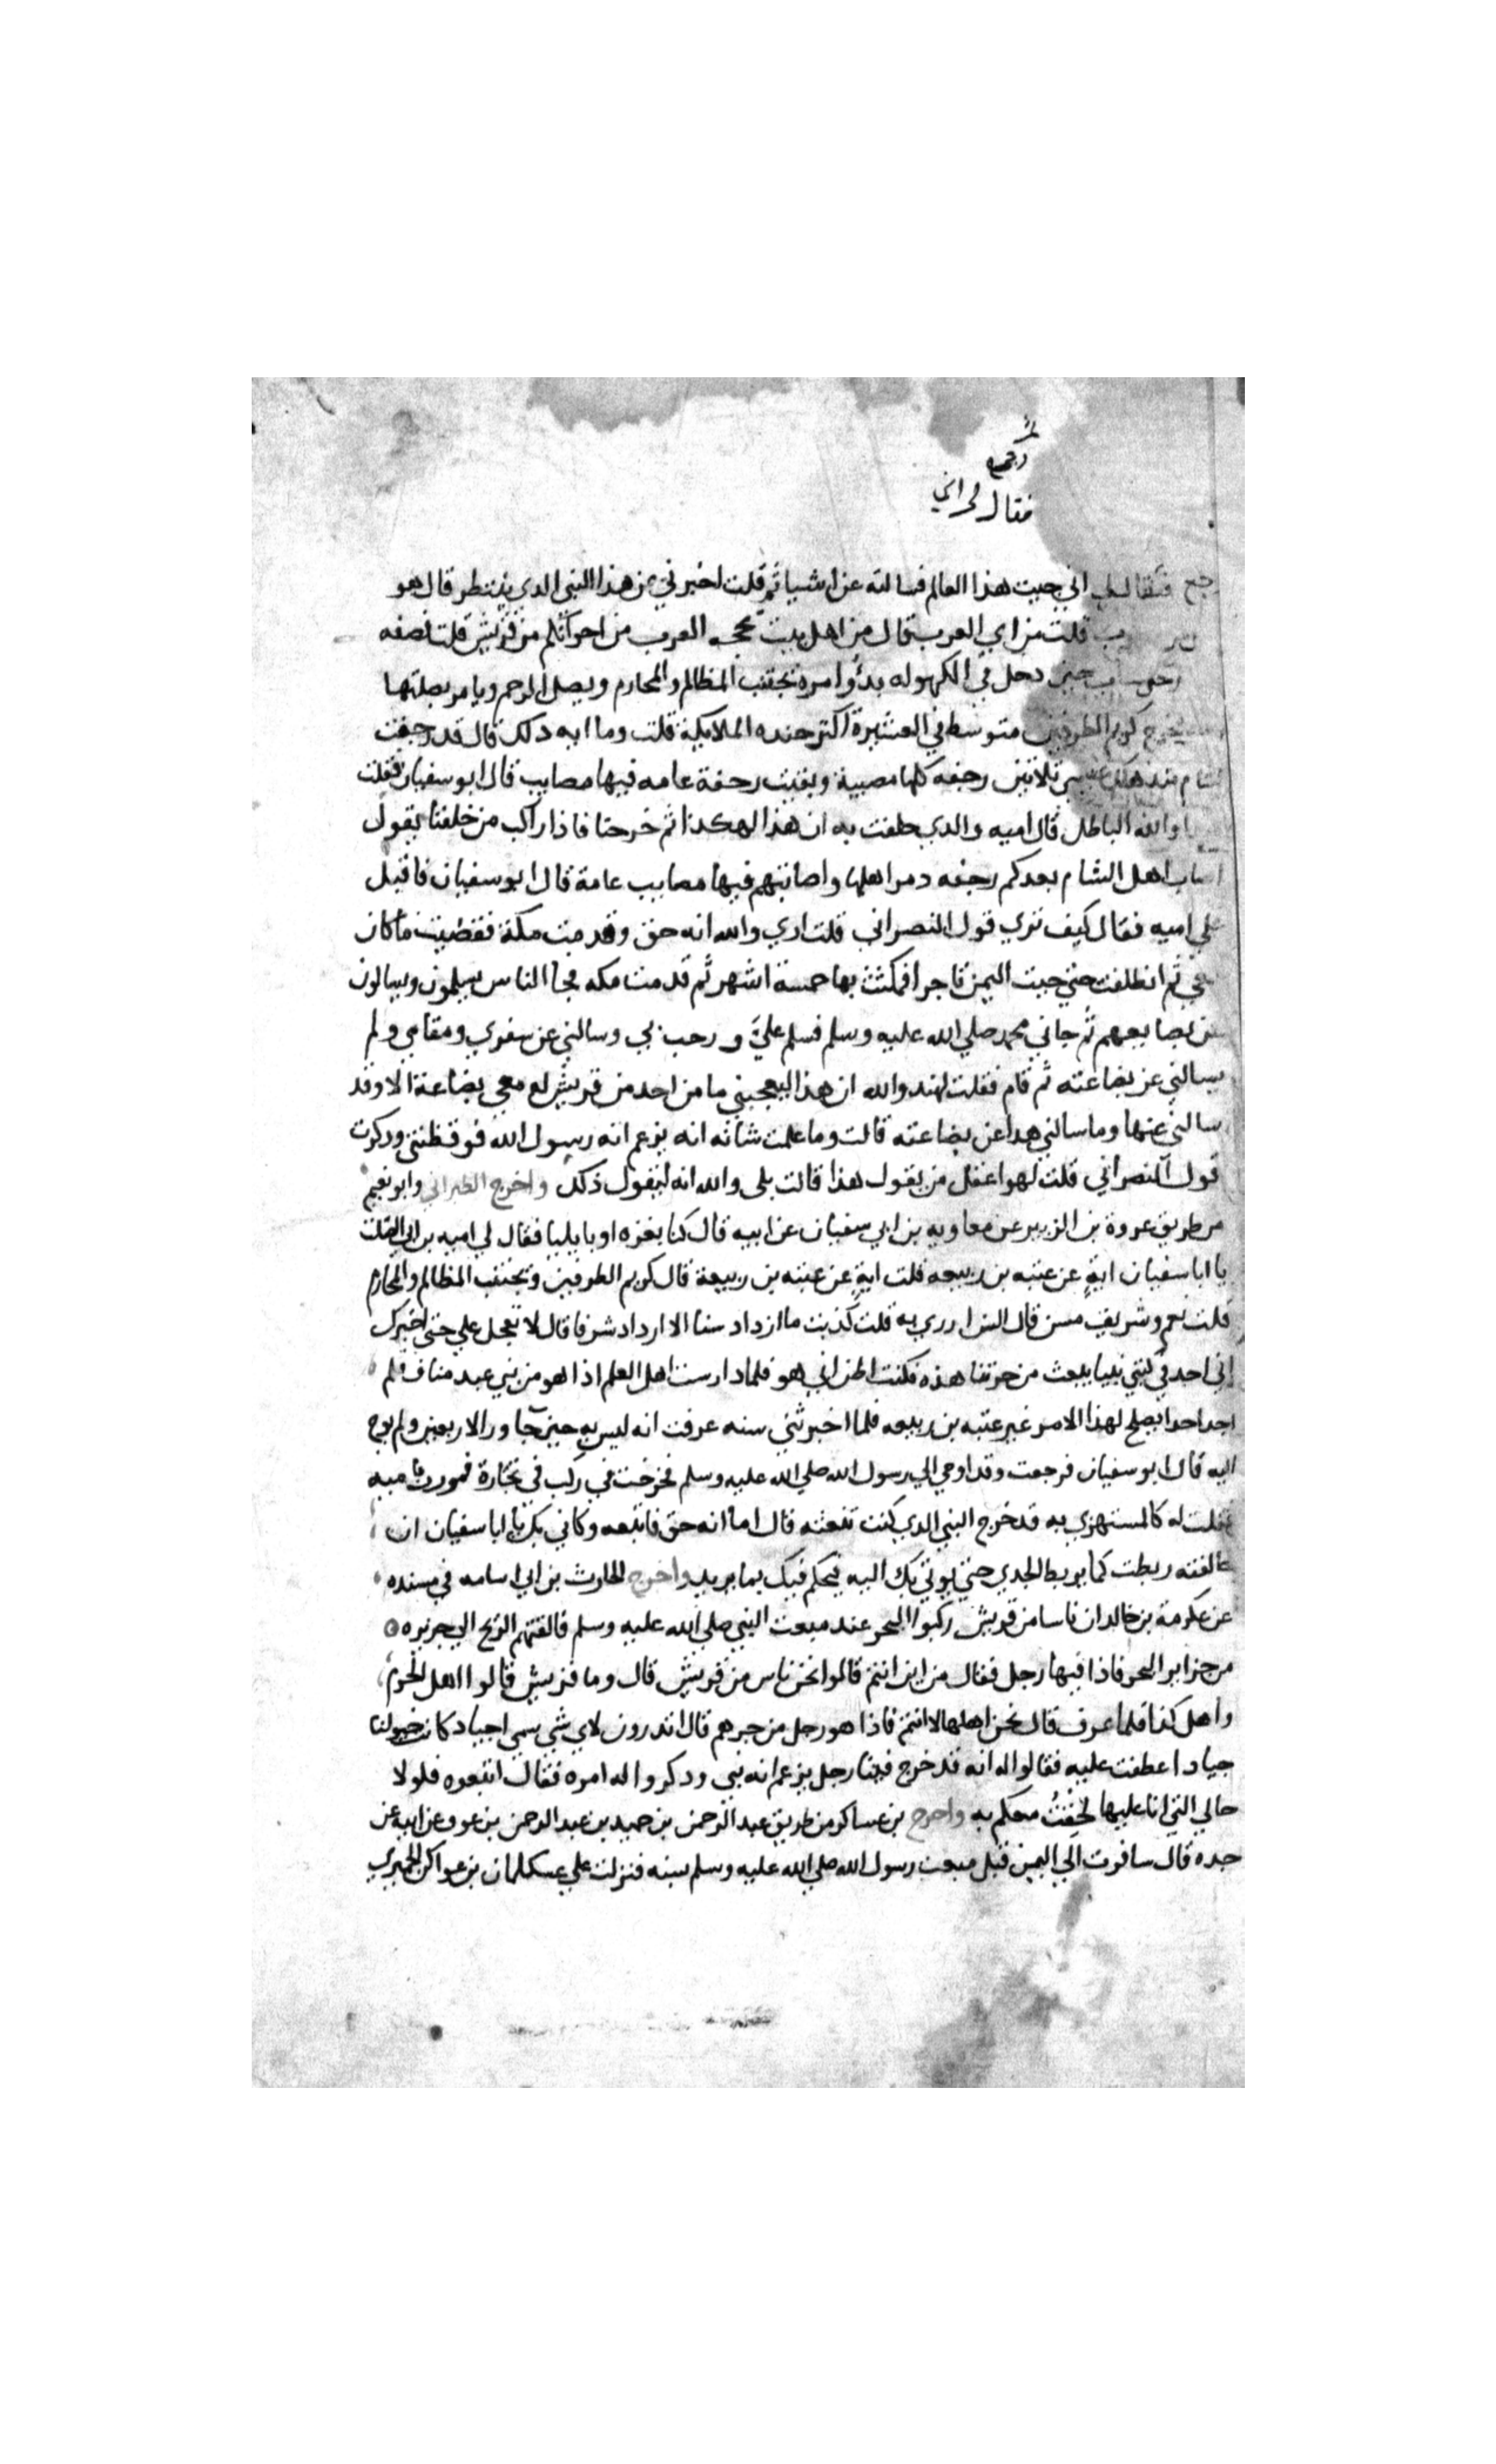 ثم
رجع
فقال لي اني
رجع فقال لي اني جيت هذا العالم فسالته عن اشيا ثم قلت اخبرني عن هذا النبي الدي ينتظر قال هو
قلت من اي العرب قال من اهل بيت تحجه العرب من اخوانكم من قريش قلت فصفه
حين دخل في الكهوله بدؤ امره يجتنب المظالم والمحارم ويصل الرحم ويامر بصلتها
يخرج كريم الطرفين متوسط في العشيرة اكثر جنده الملايكة قلت وما ايه دلك قال قد رجفت
الشام مند هلك عيسى ثلاثين رجفه كلها مصيبة وبقيت رجفة عامه فيها مصايب قال ابو سفيان فقلت
هدا والله الباطل قال اميه والدي حلفت به ان هذا لهكدا ثم خرجنا فاذا راكب من خلفنا يقول
اصاب اهل الشام بعدكم رجفه دمر اهلها واصابتهم فيها مصايب عامة قال ابو سفيان فاقبل
علي اميه فقال كيف تري قول النصراني قلت اري والله انه حق وقدمت مكة فقضيت ما كان
معي ثم انطلقت حتي جيت اليمن تاجرا فمكثت بها خمسة اشهر ثم قدمت مكه فجا الناس يسلمون ويسالون
عن بضايعهم ثم جاني محمد صلي الله عليه وسلم فسلم عليَّ ورحب بي وسالني عن سفري ومقامي ولم
يسالني عن بضاعته ثم قام فقلت لهند والله ان هذا ليعجبني ما من احد من قريش له معي بضاعة الا وقد
سالني عنها وما سالني هدا عن بضاعته قالت وما علمت شانه انه يزعم انه رسول الله فوقظتني ودكرت
قول النصراني قلت لهو اعقل من يقول هذا قالت بلى والله انه ليقول ذكك واخرج الطبراني وابو نعيم
من طريق عروة بن الزبير عن معاويه بن ابي سفيان عن ابيه قال كنا بغزه او بايليا فقال لي اميه بن ابي الصلت
يا ابا سفيان ايةٍ عن عتبه بن ربيعه قلت ايةٍ عن عتبه بن ربيعة قال كريم الطرفين ويجتنب المظالم والمحارم
قلت نعم وشريف مسن قال السن ازري به قلت كذبت ما ازداد سنا الا ازداد شرفا قال لا تعجل علي حتى اخبرك
اني اجد في كتبي نبيا يبعث من حرتنا هذه فكنت اظن اني هو فلما دارست اهل العلم اذا هو من بني عبد مناف فلم
اجد احدا يصلح لهذا الامر غير عتبه بن ربيعه فلما اخبرتني سنه عرفت انه ليس به حين جاوز الاربعين ولم يوح
اليه قال ابو سفيان فرجعت وقد اوحي الي رسول الله صلي الله عليه وسلم فخرجت في ركب في تجارة فمررت باميه
فقلت له كالمستهزي به قد خرج النبي الدي كنت تنعته قال اما انه حق فاتبعه وكاني بك يا ابا سفيان ان
خالفته ربطت كما يربط الجدي حتي يوتي بك اليه فيحكم فيك بما يريد واخرج الحارث بن ابي اسامه في مسنده
عن عكرمة بن خالد ان ناسا من قريش ركبوا البحر عند مبعث النبي صلي الله عليه وسلم فالقتهم الريح الي جزيره
من جزاير البحر فاذا فيها رجل فقال من اين انتم قالوا نحن ناس من قريش قال وما قريش قالوا اهل الحرم
واهل كذا فلما عرف قال نحن اهلها لا انتم فاذا هو رجل من جرهم قال اتدرون لاي شي سمي اجياد كانت خيولنا
جيادا عطفت عليه فقالوا له انه قد خرج فينا رجل يزعم انه نبي ودكروا له امره فقال اتبعوه فلولا
حالي التي انا عليها لحقت معكم به واخرج بن عساكر من طريق عبد الرحمن بن حميد بن عبد الرحمن بن عوف عن ابيه عن
جده قال سافرت الي اليمن قبل مبعث رسول الله صلي الله عليه وسلم بسنه فنزلت علي عسكلان بن عواكن الحميري